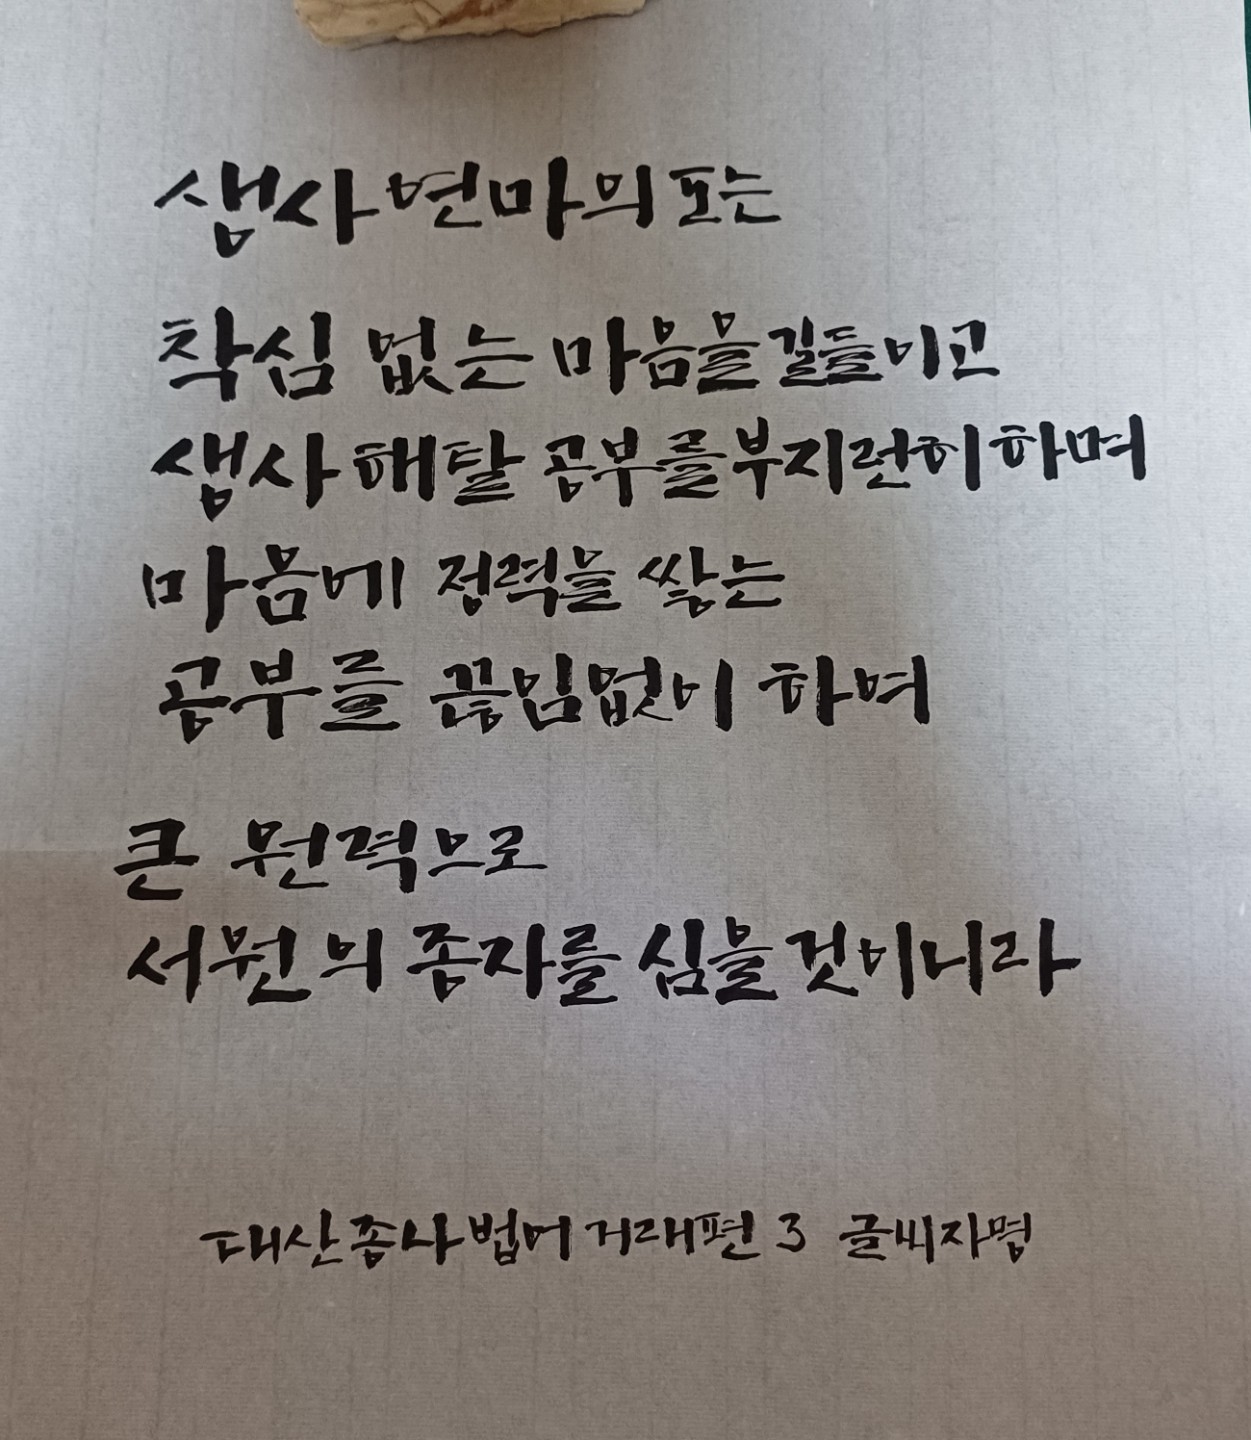 생사 연마의 도는
착심 없는 마음을 길들이고
생사 해탈 공부를 부지런히 하며
마음에 정력을 쌓는
공부를 끊임없이 하여
큰 원력으로
서원의 종자를 심을 것이니라
대산종사법어 거래편 3 글씨자명